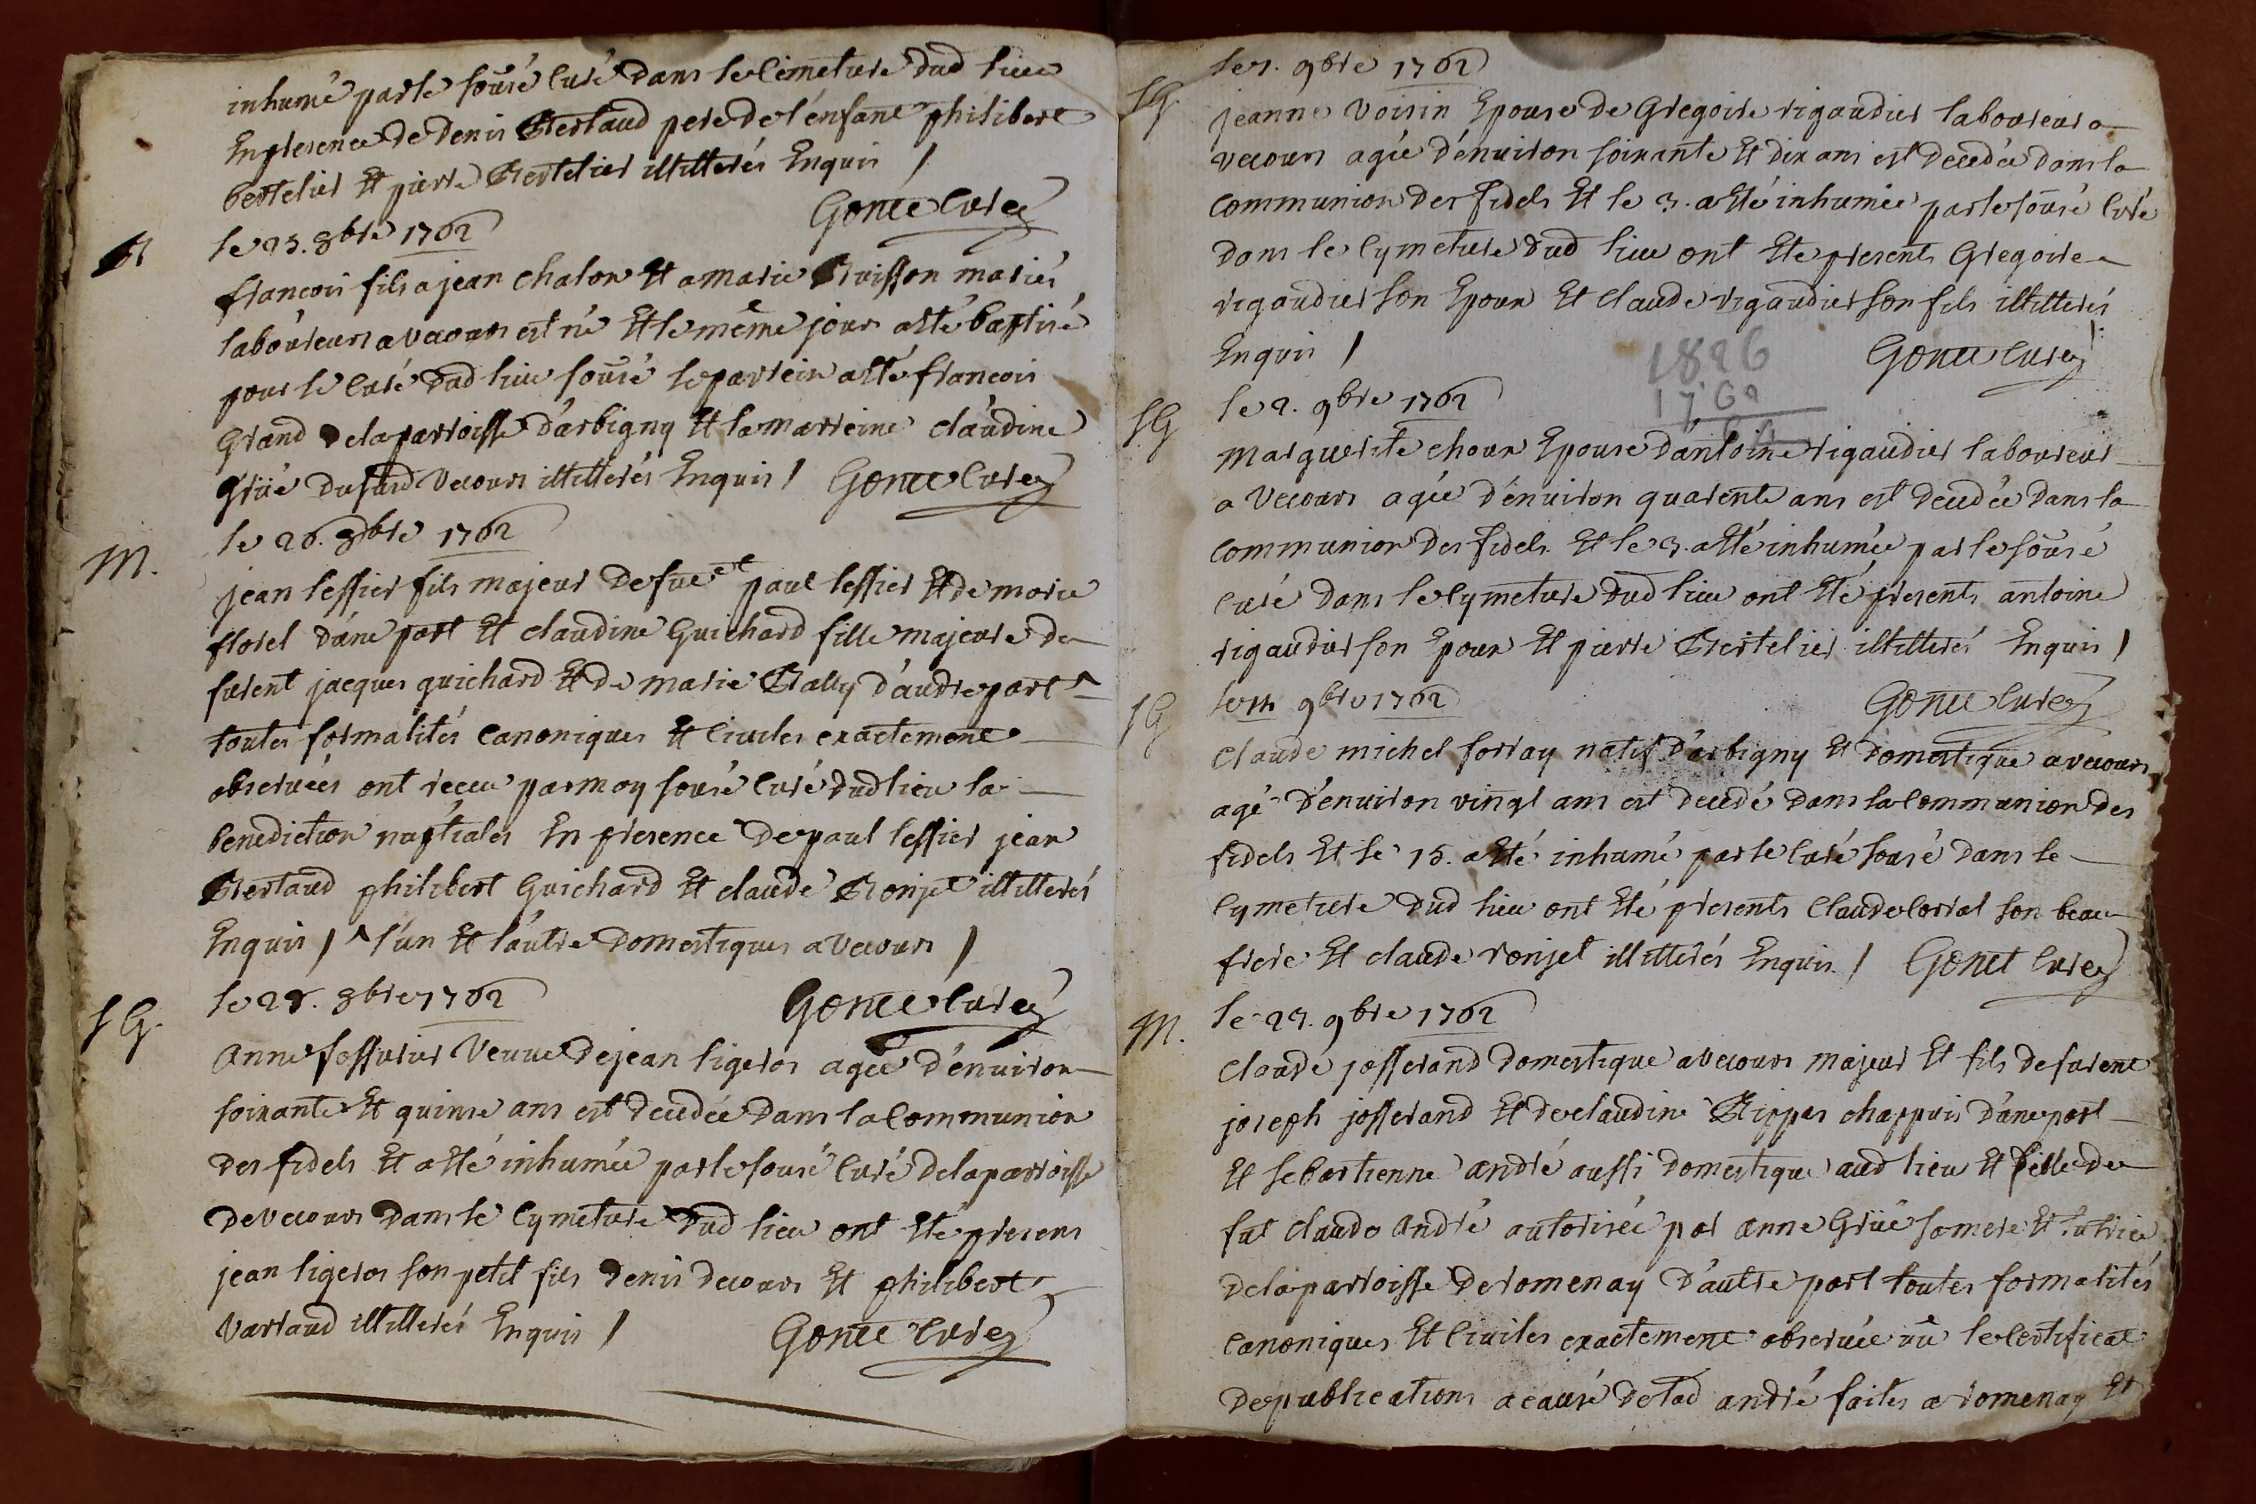 inhumé par le sousé curé dans le cimeture dud lieu
En presence de denis Bertaud pere de l'enfant philibert
bertelier Et pierre Bertelier illitterés Enquis /
Gonet curé
le 25. 8bre 1762
B
francois fils a jean chalon Et a marie Buisson mariés
laboureurs a vecours est né Et le même jour a Eté baptisé
pour le curé dud lieu sousé le parrein a Eté francois
Grand de la parroisse d'arbigny Et la marreine claudine
Grüé dususd vecours illitterés Enquis / Gonet curé
le 26. 8bre 1762
M.
jean tessier fils majeur de fuet paul tessier Et de marie
florel d'une part Et claudine Guichard fille majeure de
furent jacques guichard Et de marie Bally d'autre part ^
toutes formalités canoniques Et civiles exactement
observées ont receu par moy sousé curé dud lieu la
benediction nuptiales En presence de paul tessier jean
Bertaud philibert Guichard Et claude Ronjet illitterés
Enquis / ^ l'un Et l'autre domestiques a vecours /
le 28. 8bre 1762 Gonet curé
SG.
anne fossurier veuve de jean ligeros agée d'environ
soixante Et quinse ans est decedée dans la communion
des fidels Et a Eté inhumée par le sousé curé de la parroisse
de vecours dans le cymeture dud lieu ont Eté presens
jean ligeros son petit fils denis decours Et philibert
vartaud illitterés Enquis / Gonet curé
le 1. 9bre 1762
SG.
jeanne voisin Epouse de Gregoire rigaudier laboureur a
vecours agée d'environ soixante Et dix ans est decedée dans la
communion des fidels Et le 3. a Eté inhumée par le sousé curé
dans le cymeture dud lieu ont Ete presents Gregoire
rigaudier son Epoux Et claude rigaudier son fils illitterés
Enquis / Gonet curé
1826
1762
64
le 2. 9bre 1762
SG
marguerite choux Epouse d'antoine rigaudier laboureur
a vecours agée d'environ quarente ans est decedée dans la
communion des fidels Et le 3. a Eté inhumée par le sousé
curé dans le cymeture dud lieu ont Eté presents antoine
rigaudier son Epoux Et pierre Bertelier illitterés Enquis /
le 14 9bre 1762 Gonet curé
SG
claude michel forray natif d'arbigny Et domestique a vecours
agé d'environ vingt ans est decedé dans la communion des
fidels Et le 15. a Eté inhumé par le curé sousé dans le
cymeture dud lieu ont Eté presents claude corral son beau
frere Et claude ronjet illitterés Enquis / Gonet curé
le 23. 9bre 1762
M.
claude josserand domestique a vecours majeur Et fils de furent
joseph josserand Et de claudine chappuis d'une part
Et sebastienne andré aussi domestique aud lieu Et fille de
fut claude andré autorisée par anne Grüé sa mere Et tutrice
de la parroisse de romenay d'autre part toutes formalités
canoniques Et civiles exactement observée vû le certificat
de publications a causé de lad andré faites a romenay Et